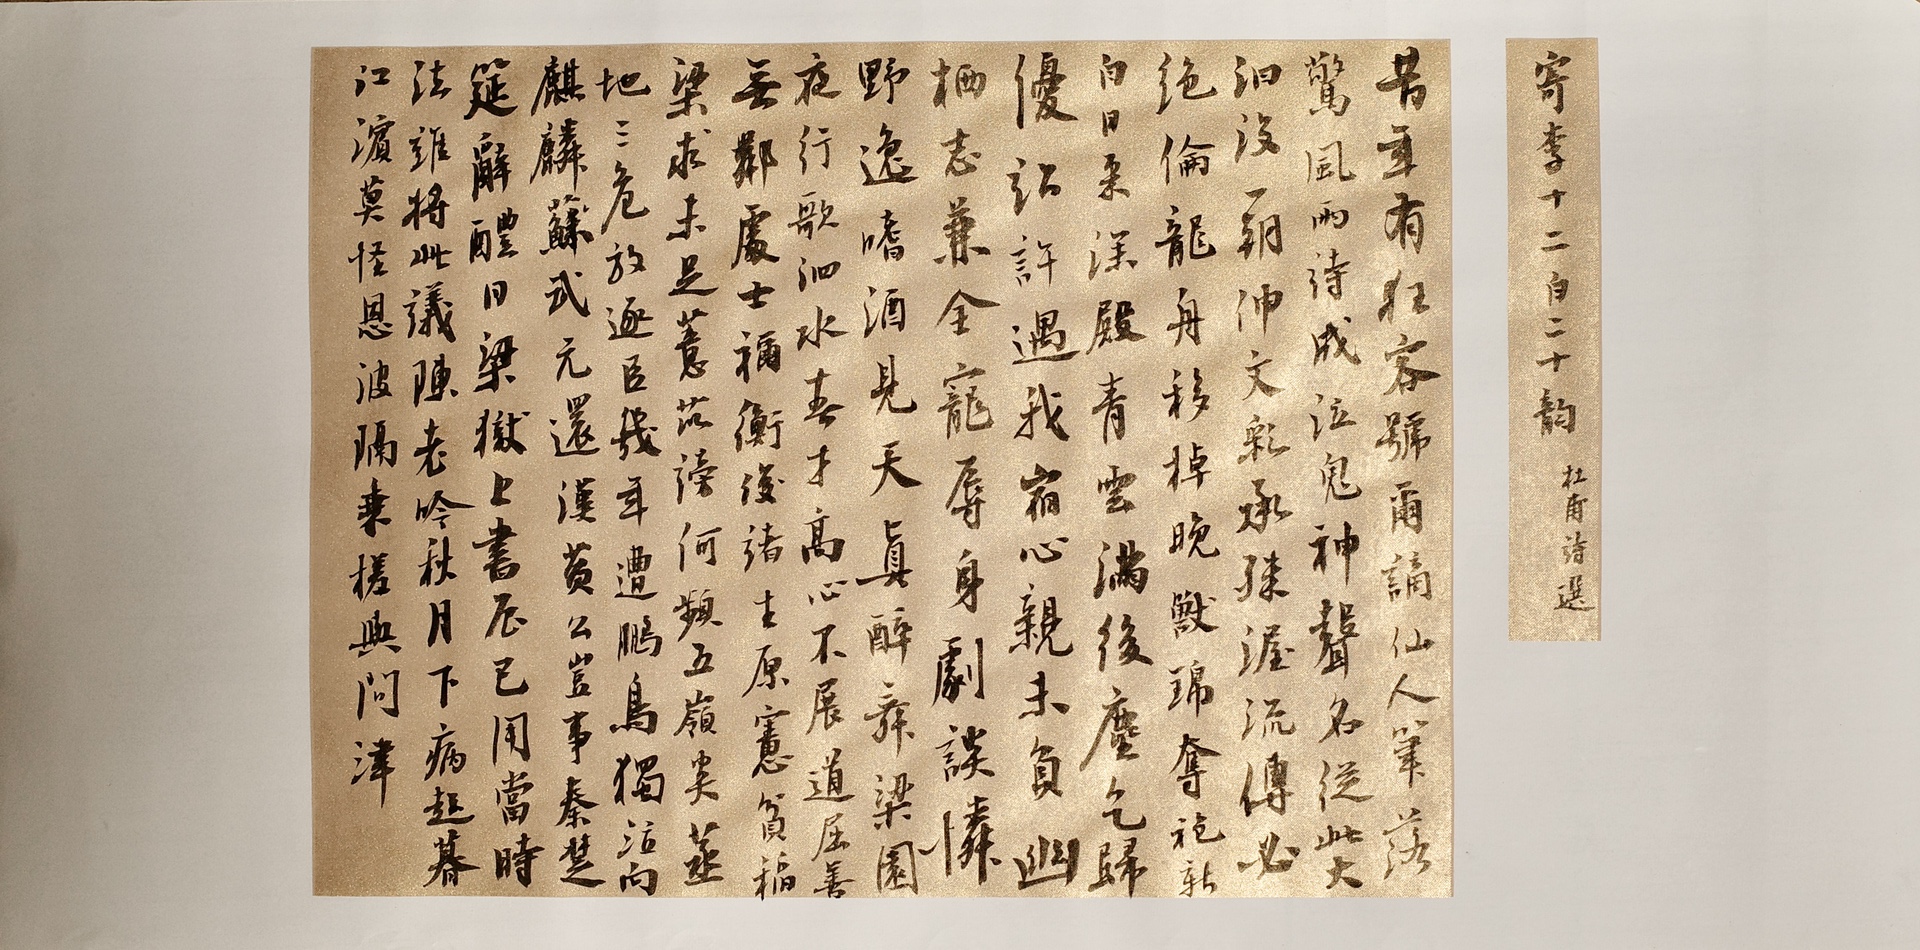 寄李十二白二十韵
杜甫詩選
昔年有狂客號爾謫仙人筆落
驚風雨詩成泣鬼神聲名從此大
汩没一朝伸文彩承殊渥流傳必
绝倫龍舟移棹晚獸錦奪袍新
白日来深殿青雲滿後塵乞歸
優詔許遇我宿心親未負幽
栖志兼全寵辱身劇談憐
野逸嗜酒見天真醉舞梁園
夜行歌泗水春才高心不展道屈善
無鄰處士禰衡俊諸生原憲貧稻
梁求未足薏苡謗何頻五嶺炎蒸
地三危放逐臣幾年遭鵩鳥獨泣向
麒麟蘇武元還漢黄公豈事秦楚
筵辭醴日梁獄上書辰已用當時
法誰將此議陳老吟秋月下病起暮
江濱莫怪恩波隔乘槎與問津